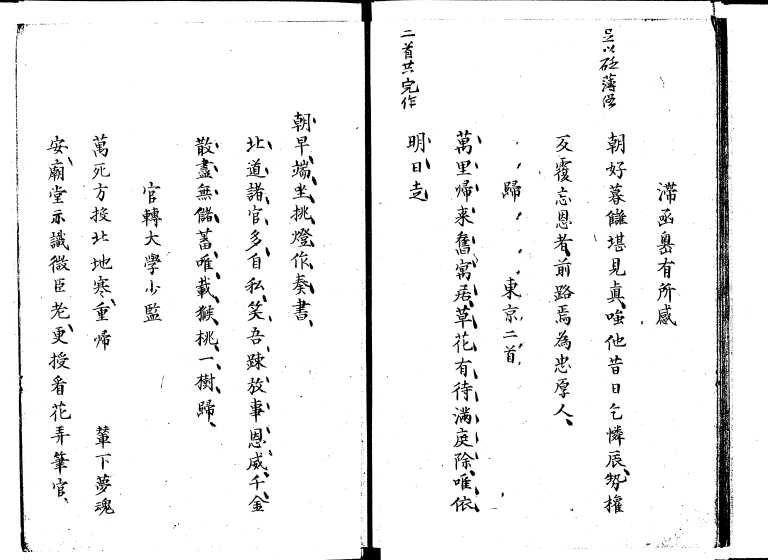 足以砭薄俗
滯函嶴有所感
朝好暮讎堪見真、嗤他昔日乞憐辰、勢權
反覆忘恩者、前路焉為忠厚人、
歸東京二首
二首共完作
萬里帰来舊寓居、草花有待満庭除、唯依
明日走
朝早、端坐挑燈作奏書、
北道諸官多自私、笑吾疎放事恩威、千金
散盡無儲蓄、唯載猴桃一樹歸、
官轉大學少監
萬死方投北地寒、重帰輦下夢魂
安、廟堂示識微臣老、更授看花弄筆官、